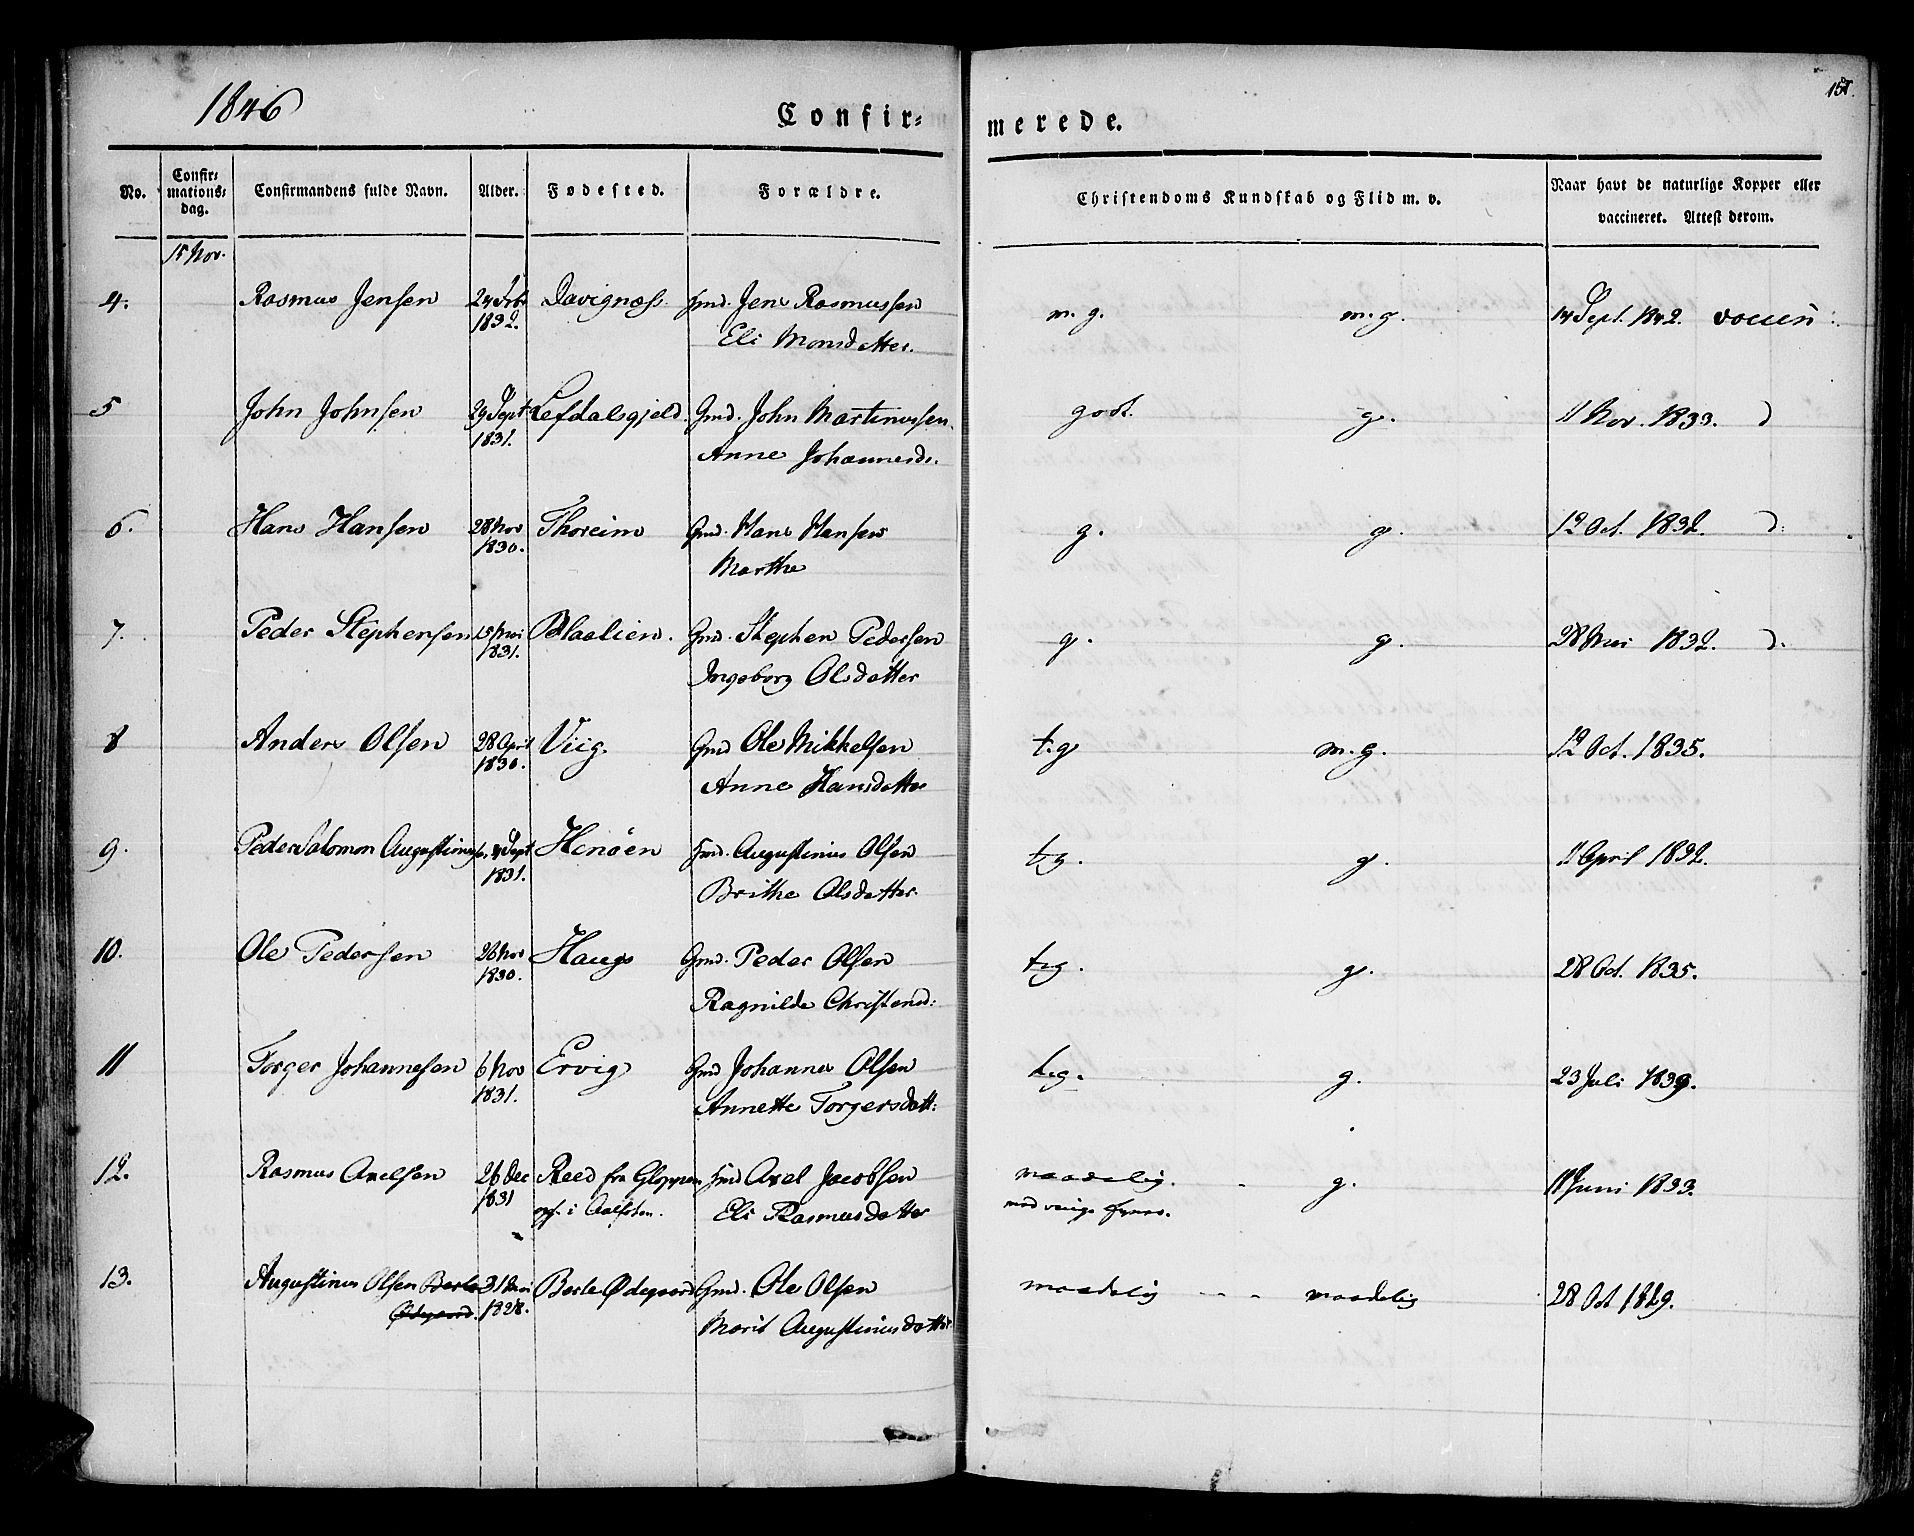 1846
Confir-
merede.
151.
No.
Confir-
mations-
dag.
Confirmandens fulde Navn.
Alder.
Fødested.
Forældre.
Christendoms Kundskab og Flid m. v.
Naar havt de naturlige Kopper eller
vaccineret. Attest derom.
15 Nov.
4. Rasmus Jensen 24 Febr Davignæs. Hmd. Jens Rasmussen m. g. m. g. 14 Sept. 1842.
1832. Eli Monsdatter.
5 John Johnsen 29 Sept Lefdalsgjeld. Gmd. John Martinussen godt. g. 11 Nov. 1833. D
1831. Anne Johannesd.
6. Hans Hansen 28 Nov Thoreim Gmd. Hans Hansen g. g. 12 Oct. 1832. D:
1830. Marthe
7. Peder Stephensen 15 Mai Blaalien. Gmd. Stephen Pedersen g. g. 28 Mai 1832. D.
1831. Ingeborg Olsdatter
8 Anders Olsen 28 April Viig. Gmd Ole Mikkelsen t. g m. g. 12 Oct. 1835.
1830. Anne Hansdatter
9. Peder Salomon Augustinusen Sept Henøen Hmd. Augustinus Olsen t. g. g. 11 April 1832.
1831. Brithe Olsdatter
10. Ole Pedersen 26 Nov Haugs Gmd. Peder Olsen t. g. g. 28 Oct. 1835.
1830. Ragnilde Christensd:
11 Torger Johannesen 6 Nov Ervig Gmd Johannes Olsen t. g. g. 23 Juli 1839.
1831. Annette Torgersdatt:
12. Rasmus Axelsen 26 Dec Reed fra Gloppen Hmd Axel Jacobsen maadelig. g. 11 Juni 1833.
1831 opf. i Aalfoten. Eli Rasmusdatter med ringe Evner.
13. Augustinus Olsen Berle 31 Mai Berle Ødegaard Gmd. Ole Olsen maadelig maadelig 28 Oct 1829.
Ødegaard. 1828. Marit Augustinusdatter